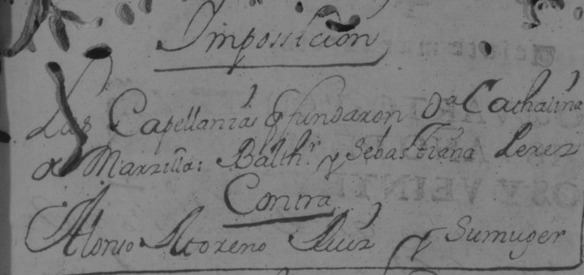 Imposicion
Las Capellanias q fundaron Da Cathalina
de Marzilla: Balthr y Sebastiana Perez
Contra
Alonso Moreno Ruiz y Sumuger